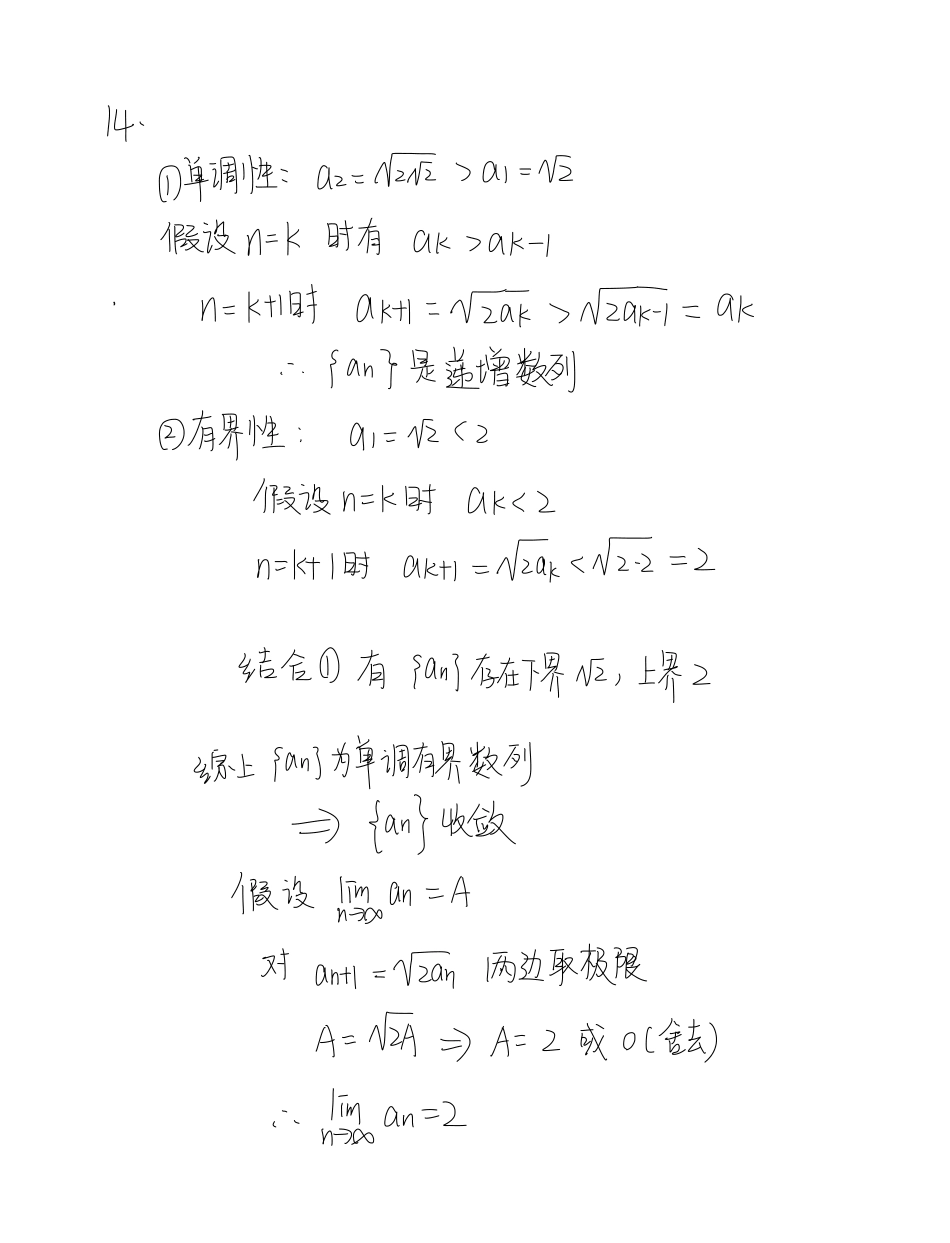 14.
①单调性: a₂=√(2√2) > a₁=√2
假设 n=k 时有 aₖ>aₖ₋₁
n=k+1时 aₖ₊₁=√(2aₖ) > √(2aₖ₋₁) = aₖ
∴ {aₙ} 是递增数列
②有界性: a₁=√2<2
假设 n=k时 aₖ<2
n=k+1时 aₖ₊₁=√(2aₖ)<√(2·2)=2
结合① 有 {aₙ} 存在下界√2, 上界2
综上 {aₙ} 为单调有界数列
⇒ {aₙ} 收敛
假设 lim_{n→∞} aₙ=A
对 aₙ₊₁=√(2aₙ) 两边取极限
A=√(2A) ⇒ A=2 或 0(舍去)
∴ lim_{n→∞} aₙ=2